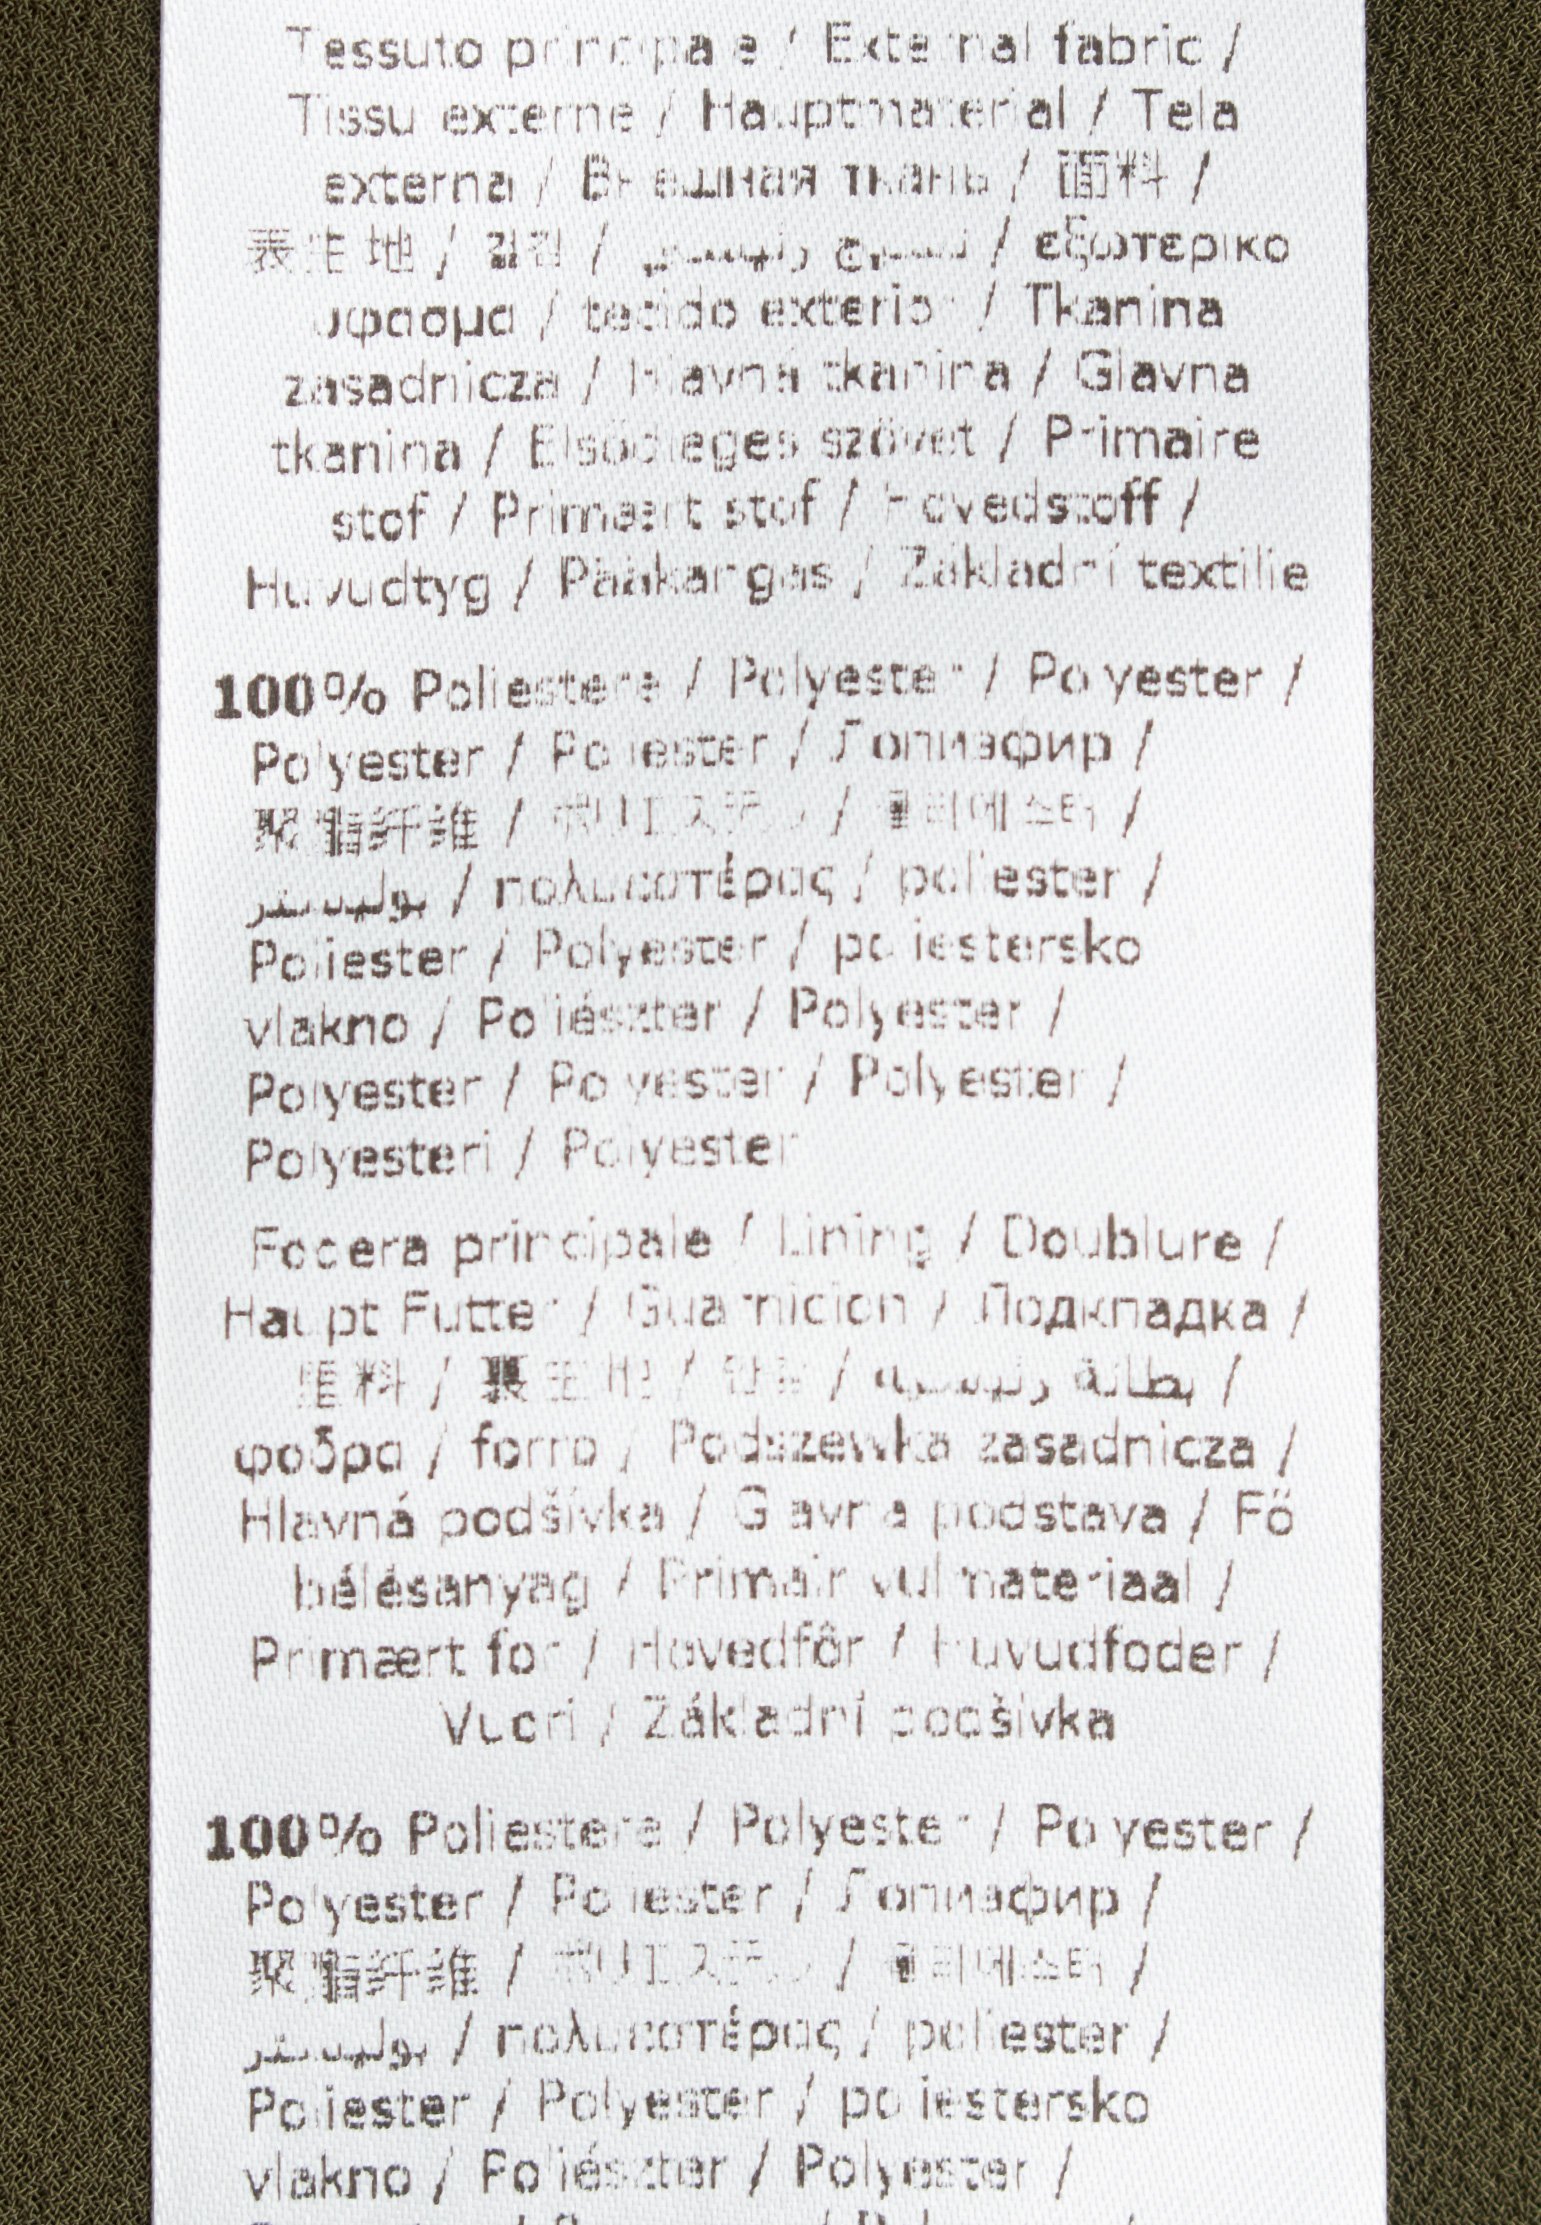 Tessuto principale / External fabric /
Tissu externe / Hauptmaterial / Tela
externa / Внешная ткань / 面料 /
表生地 / 겉감 / نسيج رئيسي / εξωτερικο
υφασμα / tecido exterior / Tkanina
zasadnicza / Hlavná tkanina / Glavna
tkanina / Elsődleges szövet / Primaire
stof / Primært stof / Hovedstoff /
Huvudtyg / Pääkangas / Základní textilie
100% Poliestere / Polyester / Polyester /
Polyester / Poliester / Полиэфир /
聚酯纤維 / ポリエステル / 폴리에스터 /
بوليستر / πολυεστέρας / poliester /
Poliester / Polyester / poliestersko
vlakno / Poliészter / Polyester /
Polyester / Polyester / Polyester /
Polyesteri / Polyester
Fodera principale / Lining / Doublure /
Haupt Futter / Guarnicion / Подкладка /
里料 / 裏生地 / 안감 / بطانة رئيسية /
φοδρα / forro / Podszewka zasadnicza /
Hlavná podšívka / Glavna podstava / Fő
bélésanyag / Primair vulmateriaal /
Primært for / Hovedfôr / Huvudfoder /
Vuori / Základní podšívka
100% Poliestere / Polyester / Polyester /
Polyester / Poliester / Полиэфир /
聚酯纤維 / ポリエステル / 폴리에스터 /
بوليستر / πολυεστέρας / poliester /
Poliester / Polyester / poliestersko
vlakno / Poliészter / Polyester /